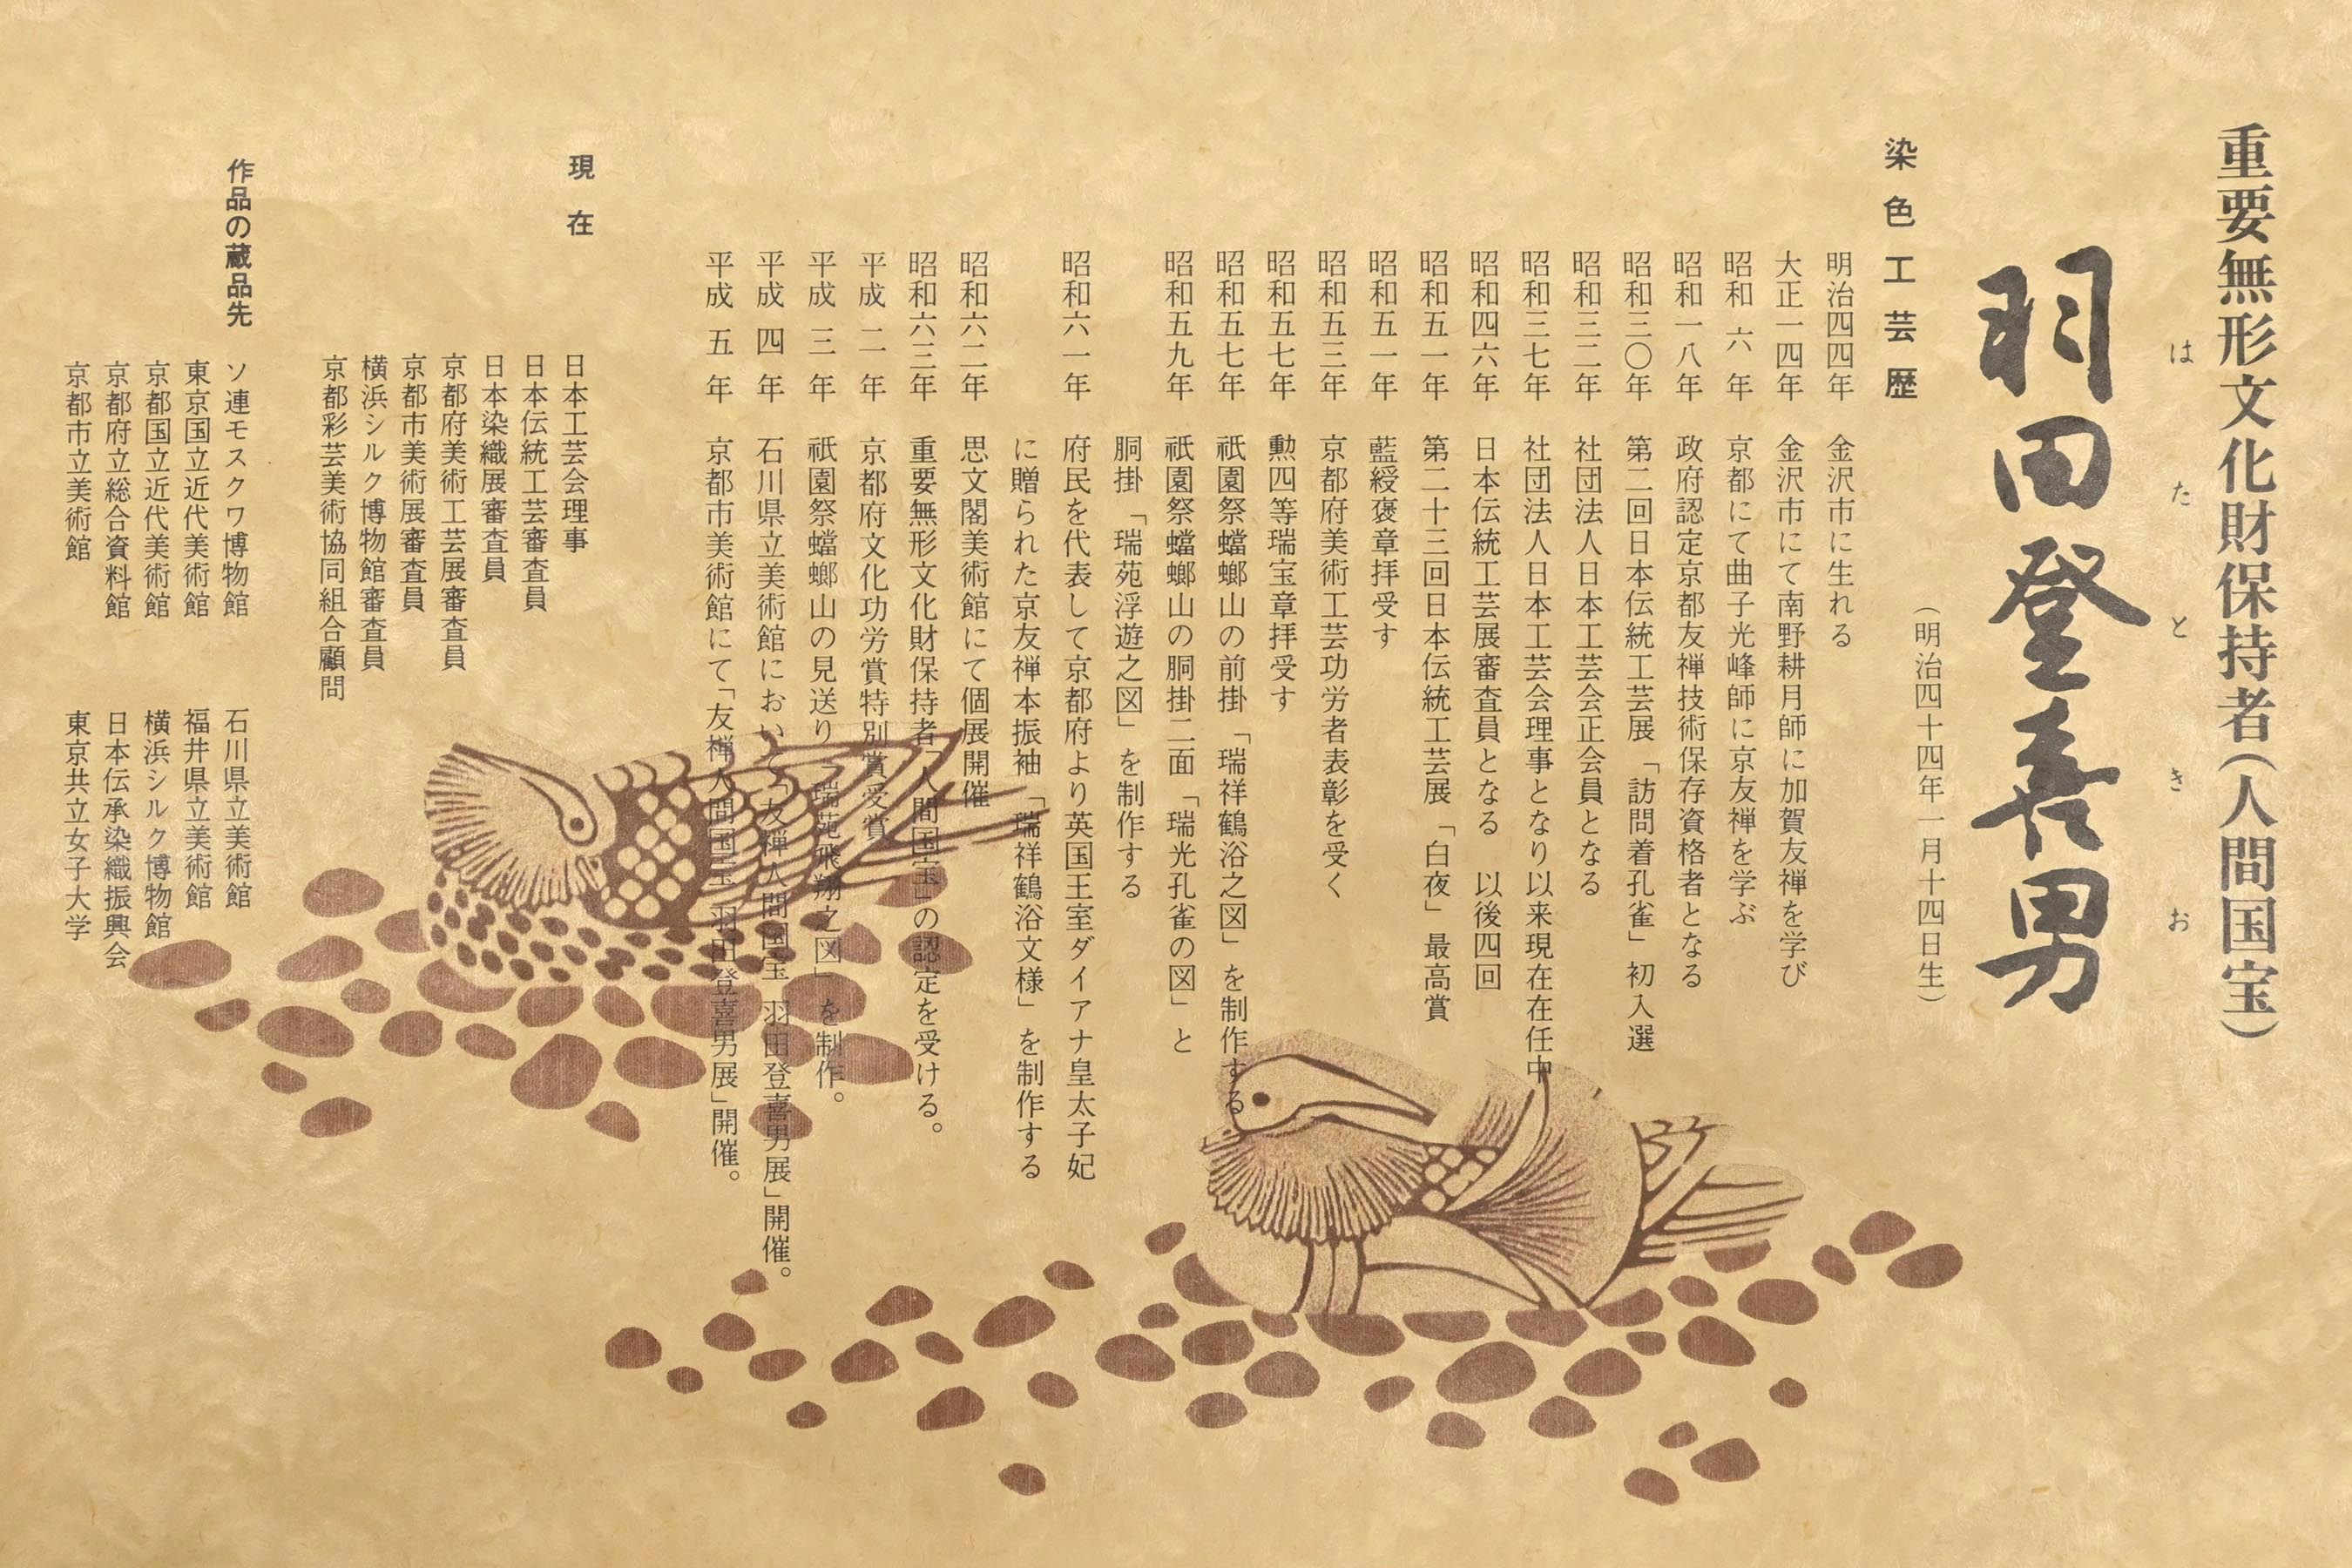 重要無形文化財保持者（人間国宝）
はたときお
羽田登喜男
（明治四十四年一月十四日生）
染色工芸歴
明治四四年 金沢市に生れる
大正一四年 金沢市にて南野耕月師に加賀友禅を学び
昭和六年 京都にて曲子光峰師に京友禅を学ぶ
昭和一八年 政府認定京都友禅技術保存資格者となる
昭和三〇年 第二回日本伝統工芸展「訪問着孔雀」初入選
昭和三二年 社団法人日本工芸会正会員となる
昭和三七年 社団法人日本工芸会理事となり以来現在在任中
昭和四六年 日本伝統工芸展審査員となる 以後四回
昭和五一年 第二十三回日本伝統工芸展「白夜」最高賞
昭和五一年 藍綬褒章拝受す
昭和五三年 京都府美術工芸功労者表彰を受く
昭和五七年 勲四等瑞宝章拝受す
昭和五七年 祇園祭蟷螂山の前掛「瑞祥鶴浴之図」を制作する
昭和五九年 祇園祭蟷螂山の胴掛二面「瑞光孔雀の図」と
胴掛「瑞苑浮遊之図」を制作する
昭和六一年 府民を代表して京都府より英国王室ダイアナ皇太子妃
に贈られた京友禅本振袖「瑞祥鶴浴文様」を制作する
昭和六二年 思文閣美術館にて個展開催
昭和六三年 重要無形文化財保持者「人間国宝」の認定を受ける。
平成二年 京都府文化功労賞特別賞受賞
平成三年 祇園祭蟷螂山の見送り「瑞苑飛翔之図」を制作。
平成四年 石川県立美術館において「友禅人間国宝 羽田登喜男展」開催。
平成五年 京都市美術館にて「友禅人間国宝 羽田登喜男展」開催。
現在
日本工芸会理事
日本伝統工芸審査員
日本染織展審査員
京都府美術工芸展審査員
京都市美術展審査員
横浜シルク博物館審査員
京都彩芸美術協同組合顧問
作品の蔵品先
ソ連モスクワ博物館
東京国立近代美術館
京都国立近代美術館
京都府立総合資料館
京都市立美術館
石川県立美術館
福井県立美術館
横浜シルク博物館
日本伝承染織振興会
東京共立女子大学